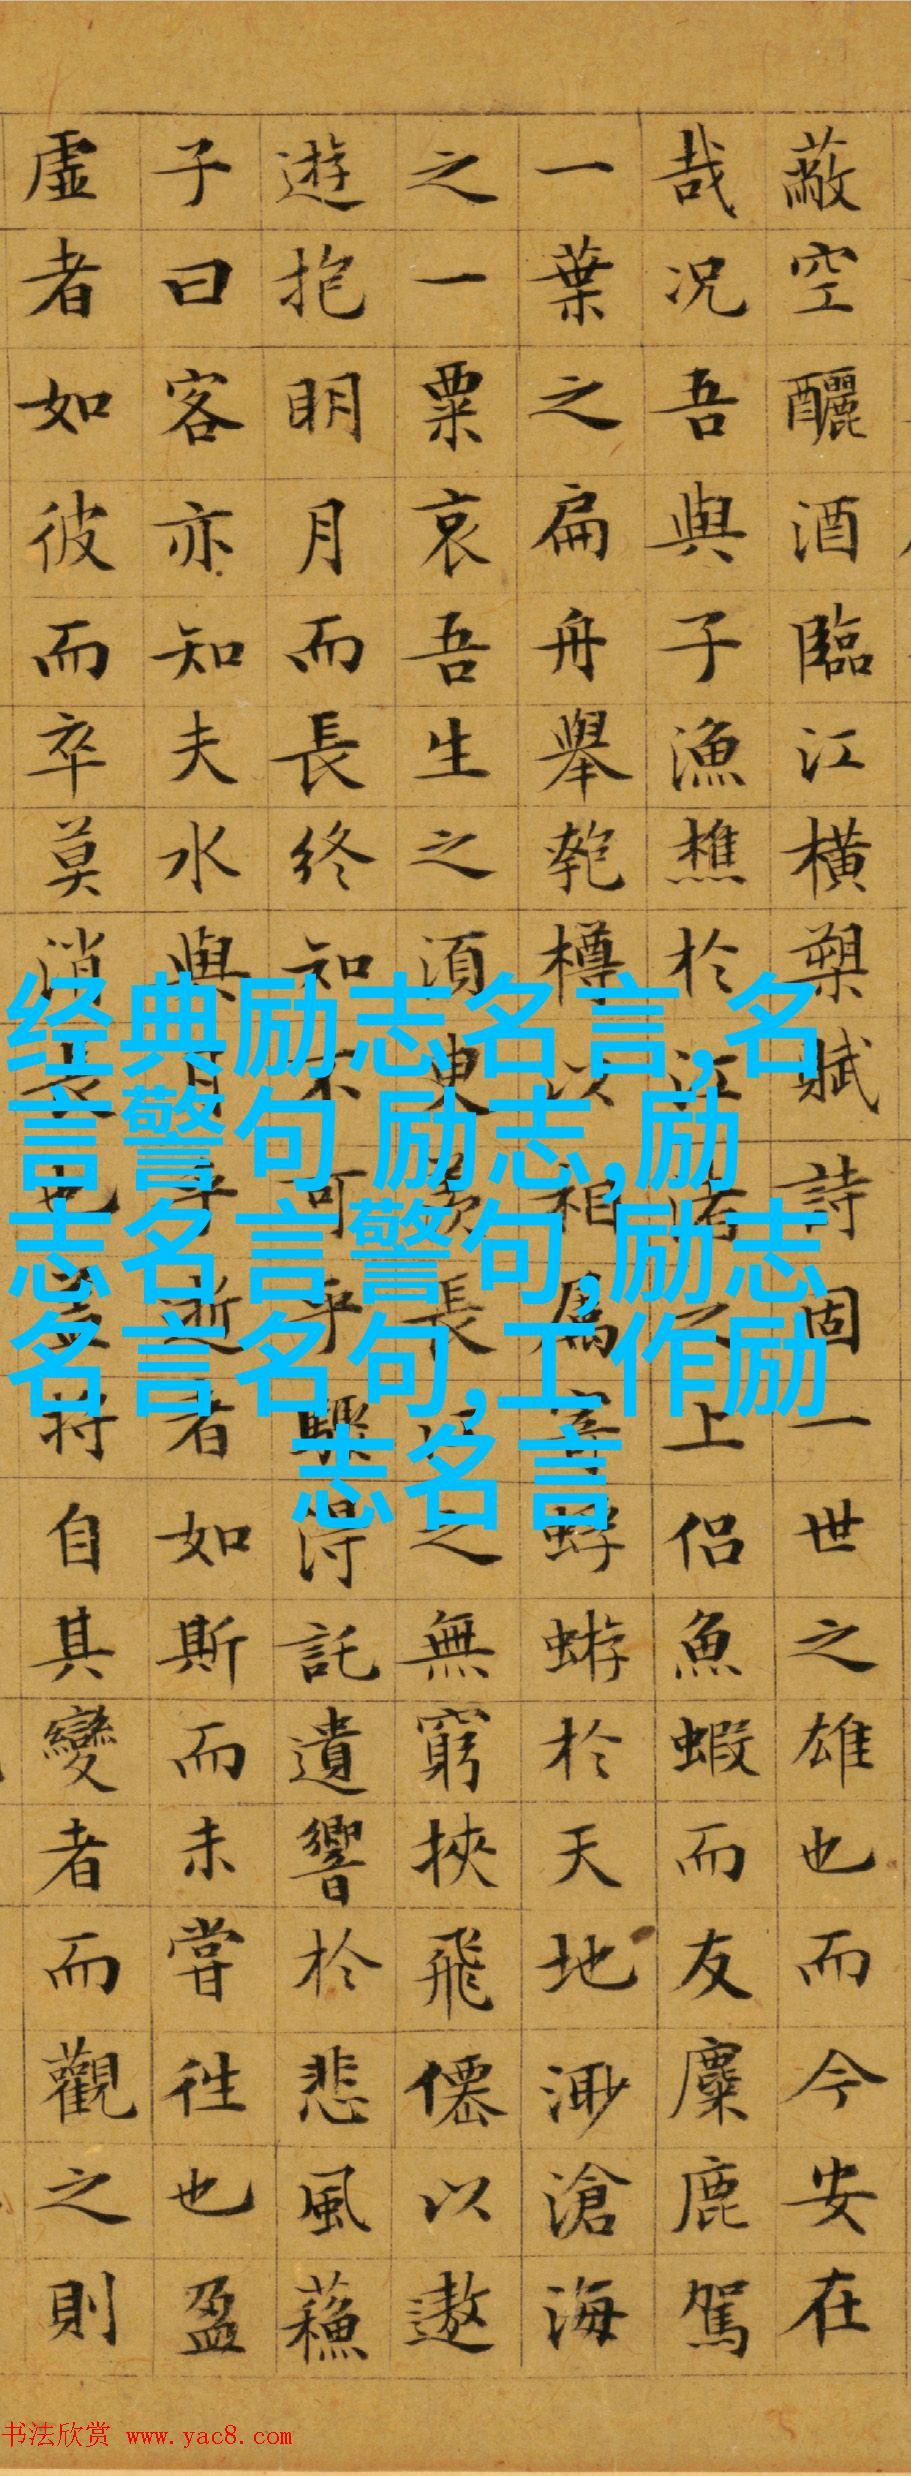 蔽空釃酒臨江橫槊賦詩固一世之雄也而今安在
哉况吾與子漁樵於江渚之上侶魚蝦而友麋鹿駕
一葉之扁舟舉匏樽以相属寄蜉蝣於天地渺滄海
之一粟哀吾生之須臾羡長江之無窮挾飛僊以遨
遊抱明月而長終知不可乎驟得託遺響於悲風蘇
子曰客亦知夫水與月乎逝者如斯而未嘗往也盈
虛者如彼而卒莫消長也盖将自其變者而觀之則
经典励志名言,名
言警句 励志,励
志名言警句,励志
名言名句,工作励
志名言
书法欣赏 www.yac8.com